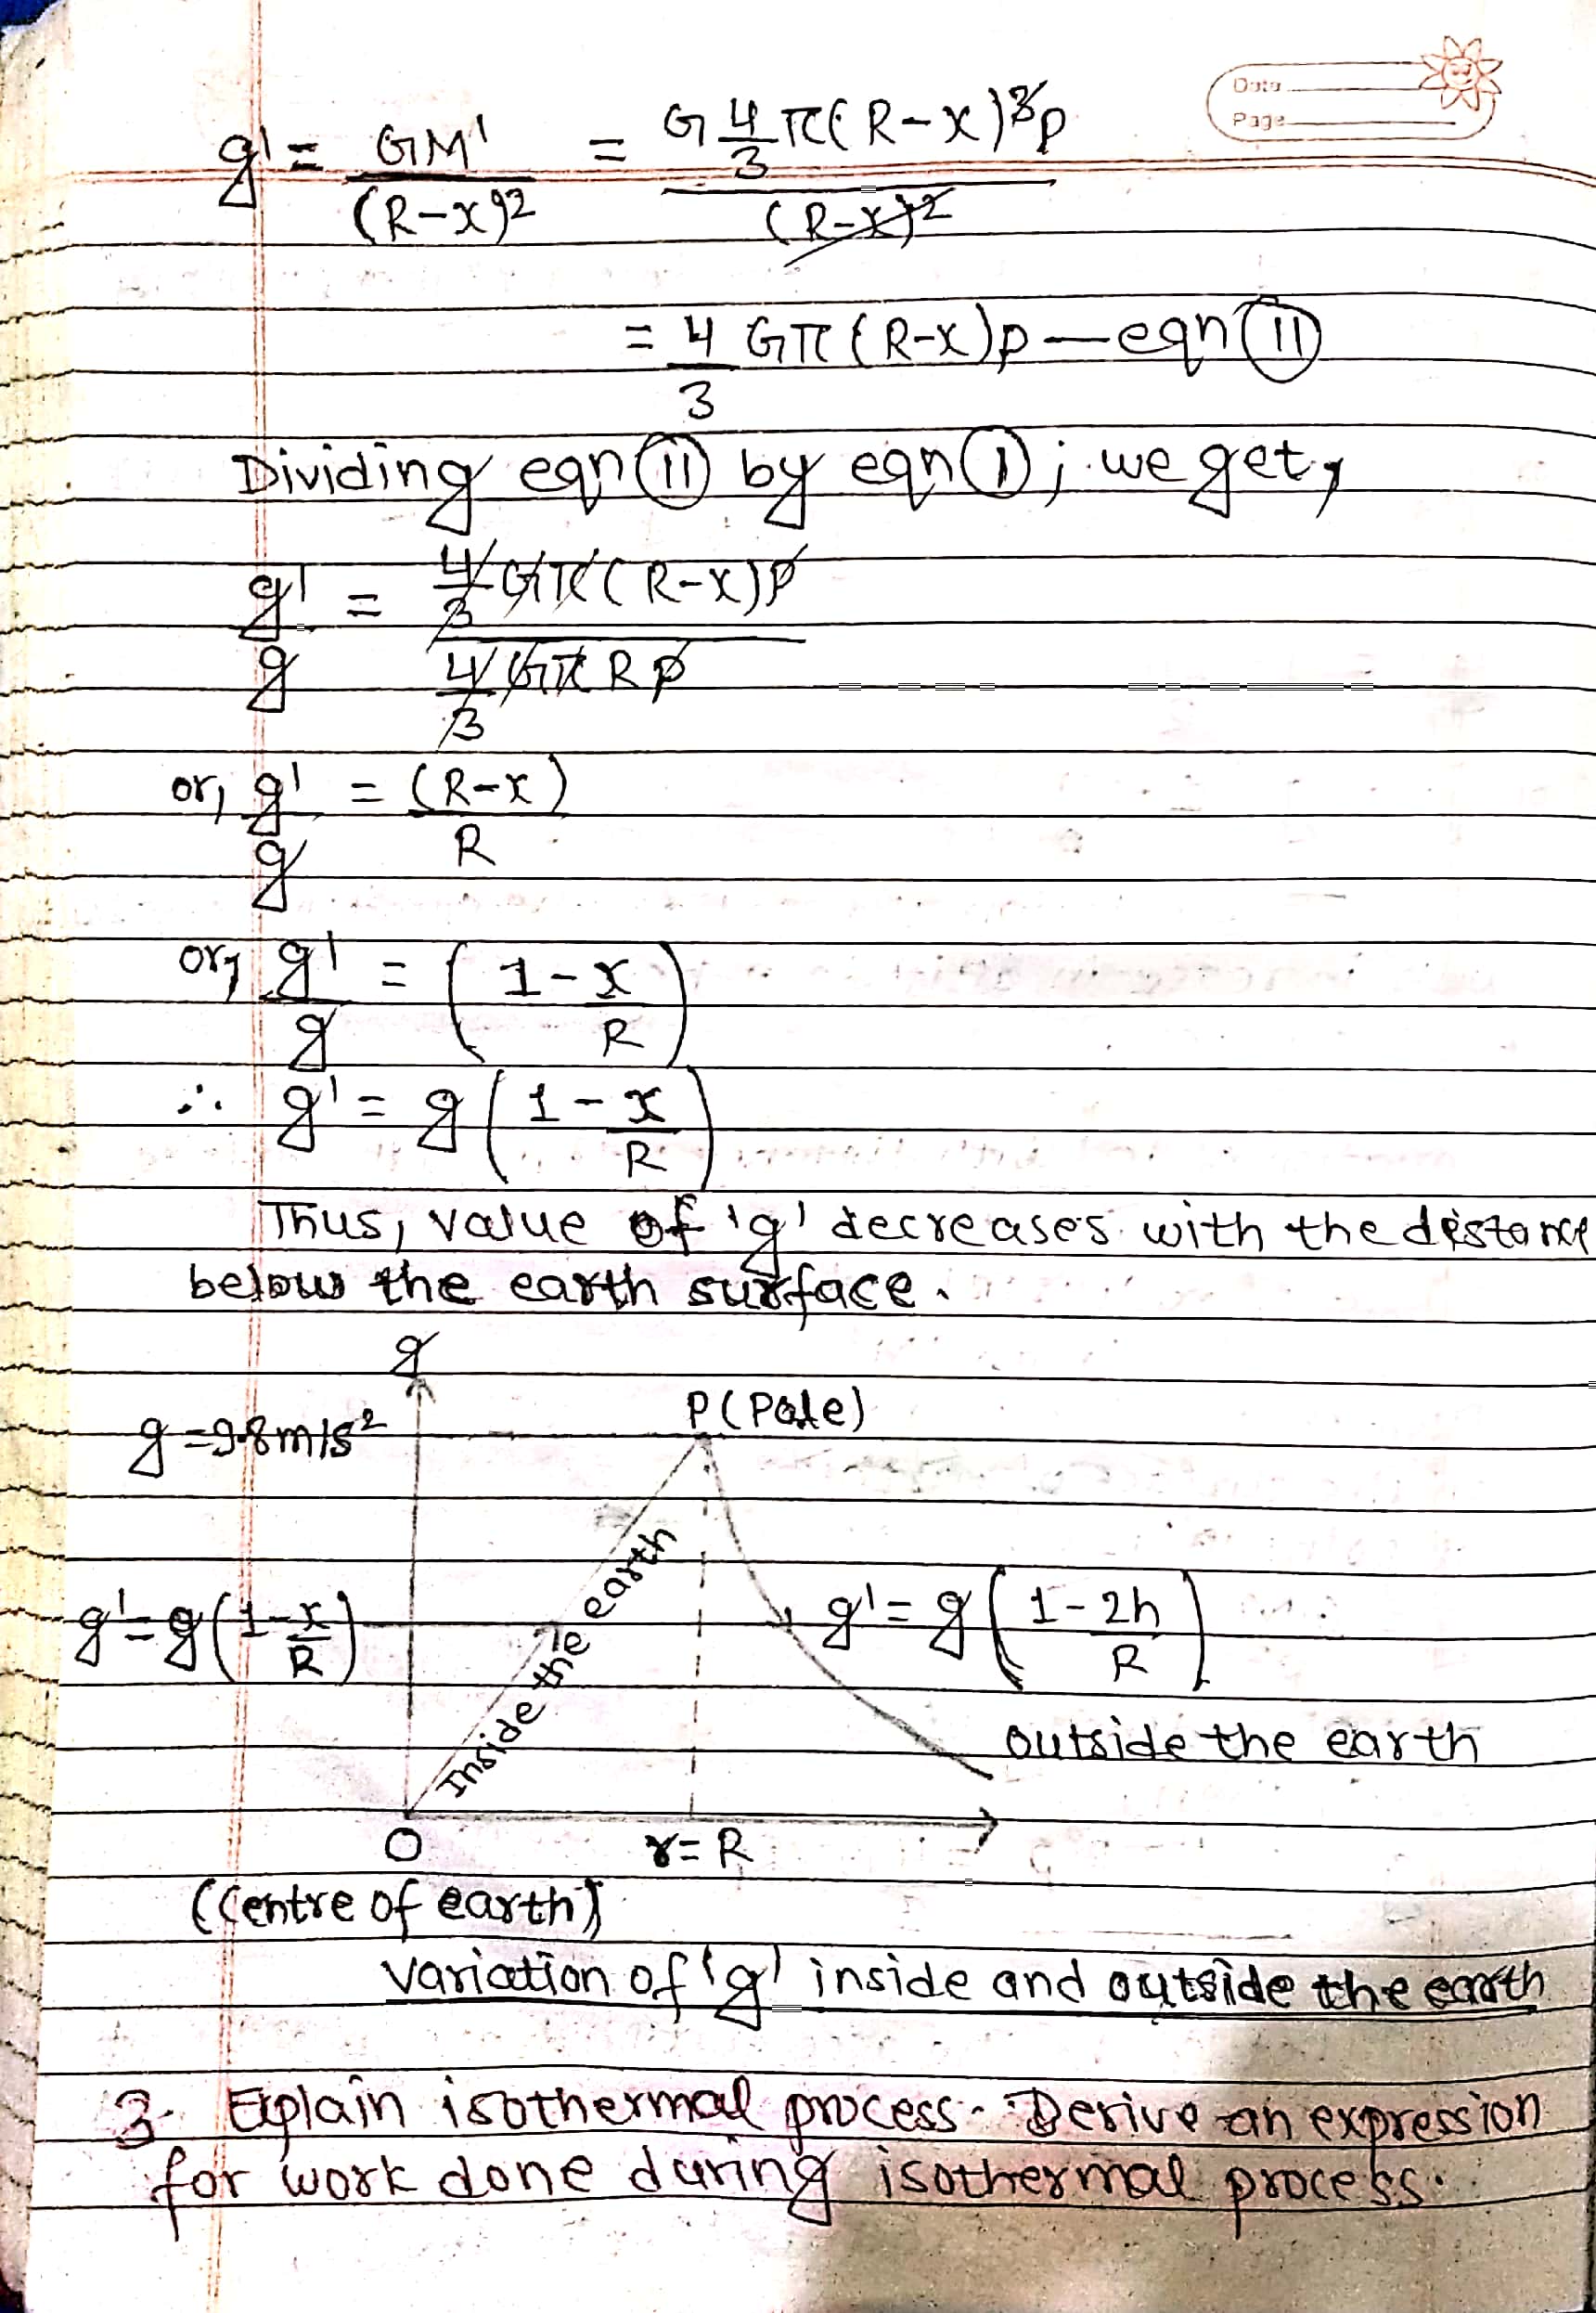 Date
Page
g' = GM' / (R-x)² = G 4/3 π(R-x)³ρ / (R-x)²
= 4/3 Gπ(R-x)ρ — eqn (11)
Dividing eqn (11) by eqn (1); we get,
g'/g = 4/3 Gπ(R-x)ρ / 4/3 GπRρ
or, g'/g = (R-x)/R
or, g'/g = (1-x/R)
∴ g' = g(1-x/R)
Thus, value of 'g' decreases with the distance
below the earth surface.
g
P(Pole)
g=9.8m/s²
Inside the earth
g'=g(1-x/R)
g'=g(1-2h/R)
outside the earth
O
r=R
(Centre of earth)
Variation of 'g' inside and outside the earth
3. Explain isothermal process. Derive an expression
for work done during isothermal process.